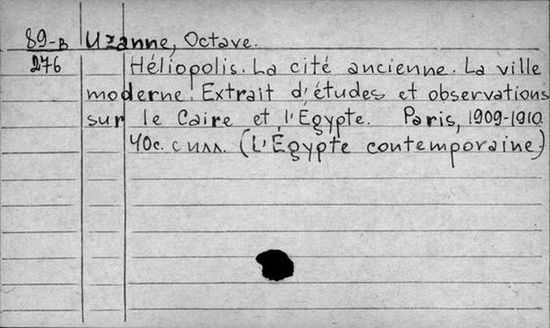 89-в Uzanne, Octave.
276 Héliopolis. La cité ancienne. La ville
moderne. Extrait d'études et observations
sur le Caire et l'Égypte. Paris, 1909-1910.
40с. с илл. (L'Égypte contemporaine)